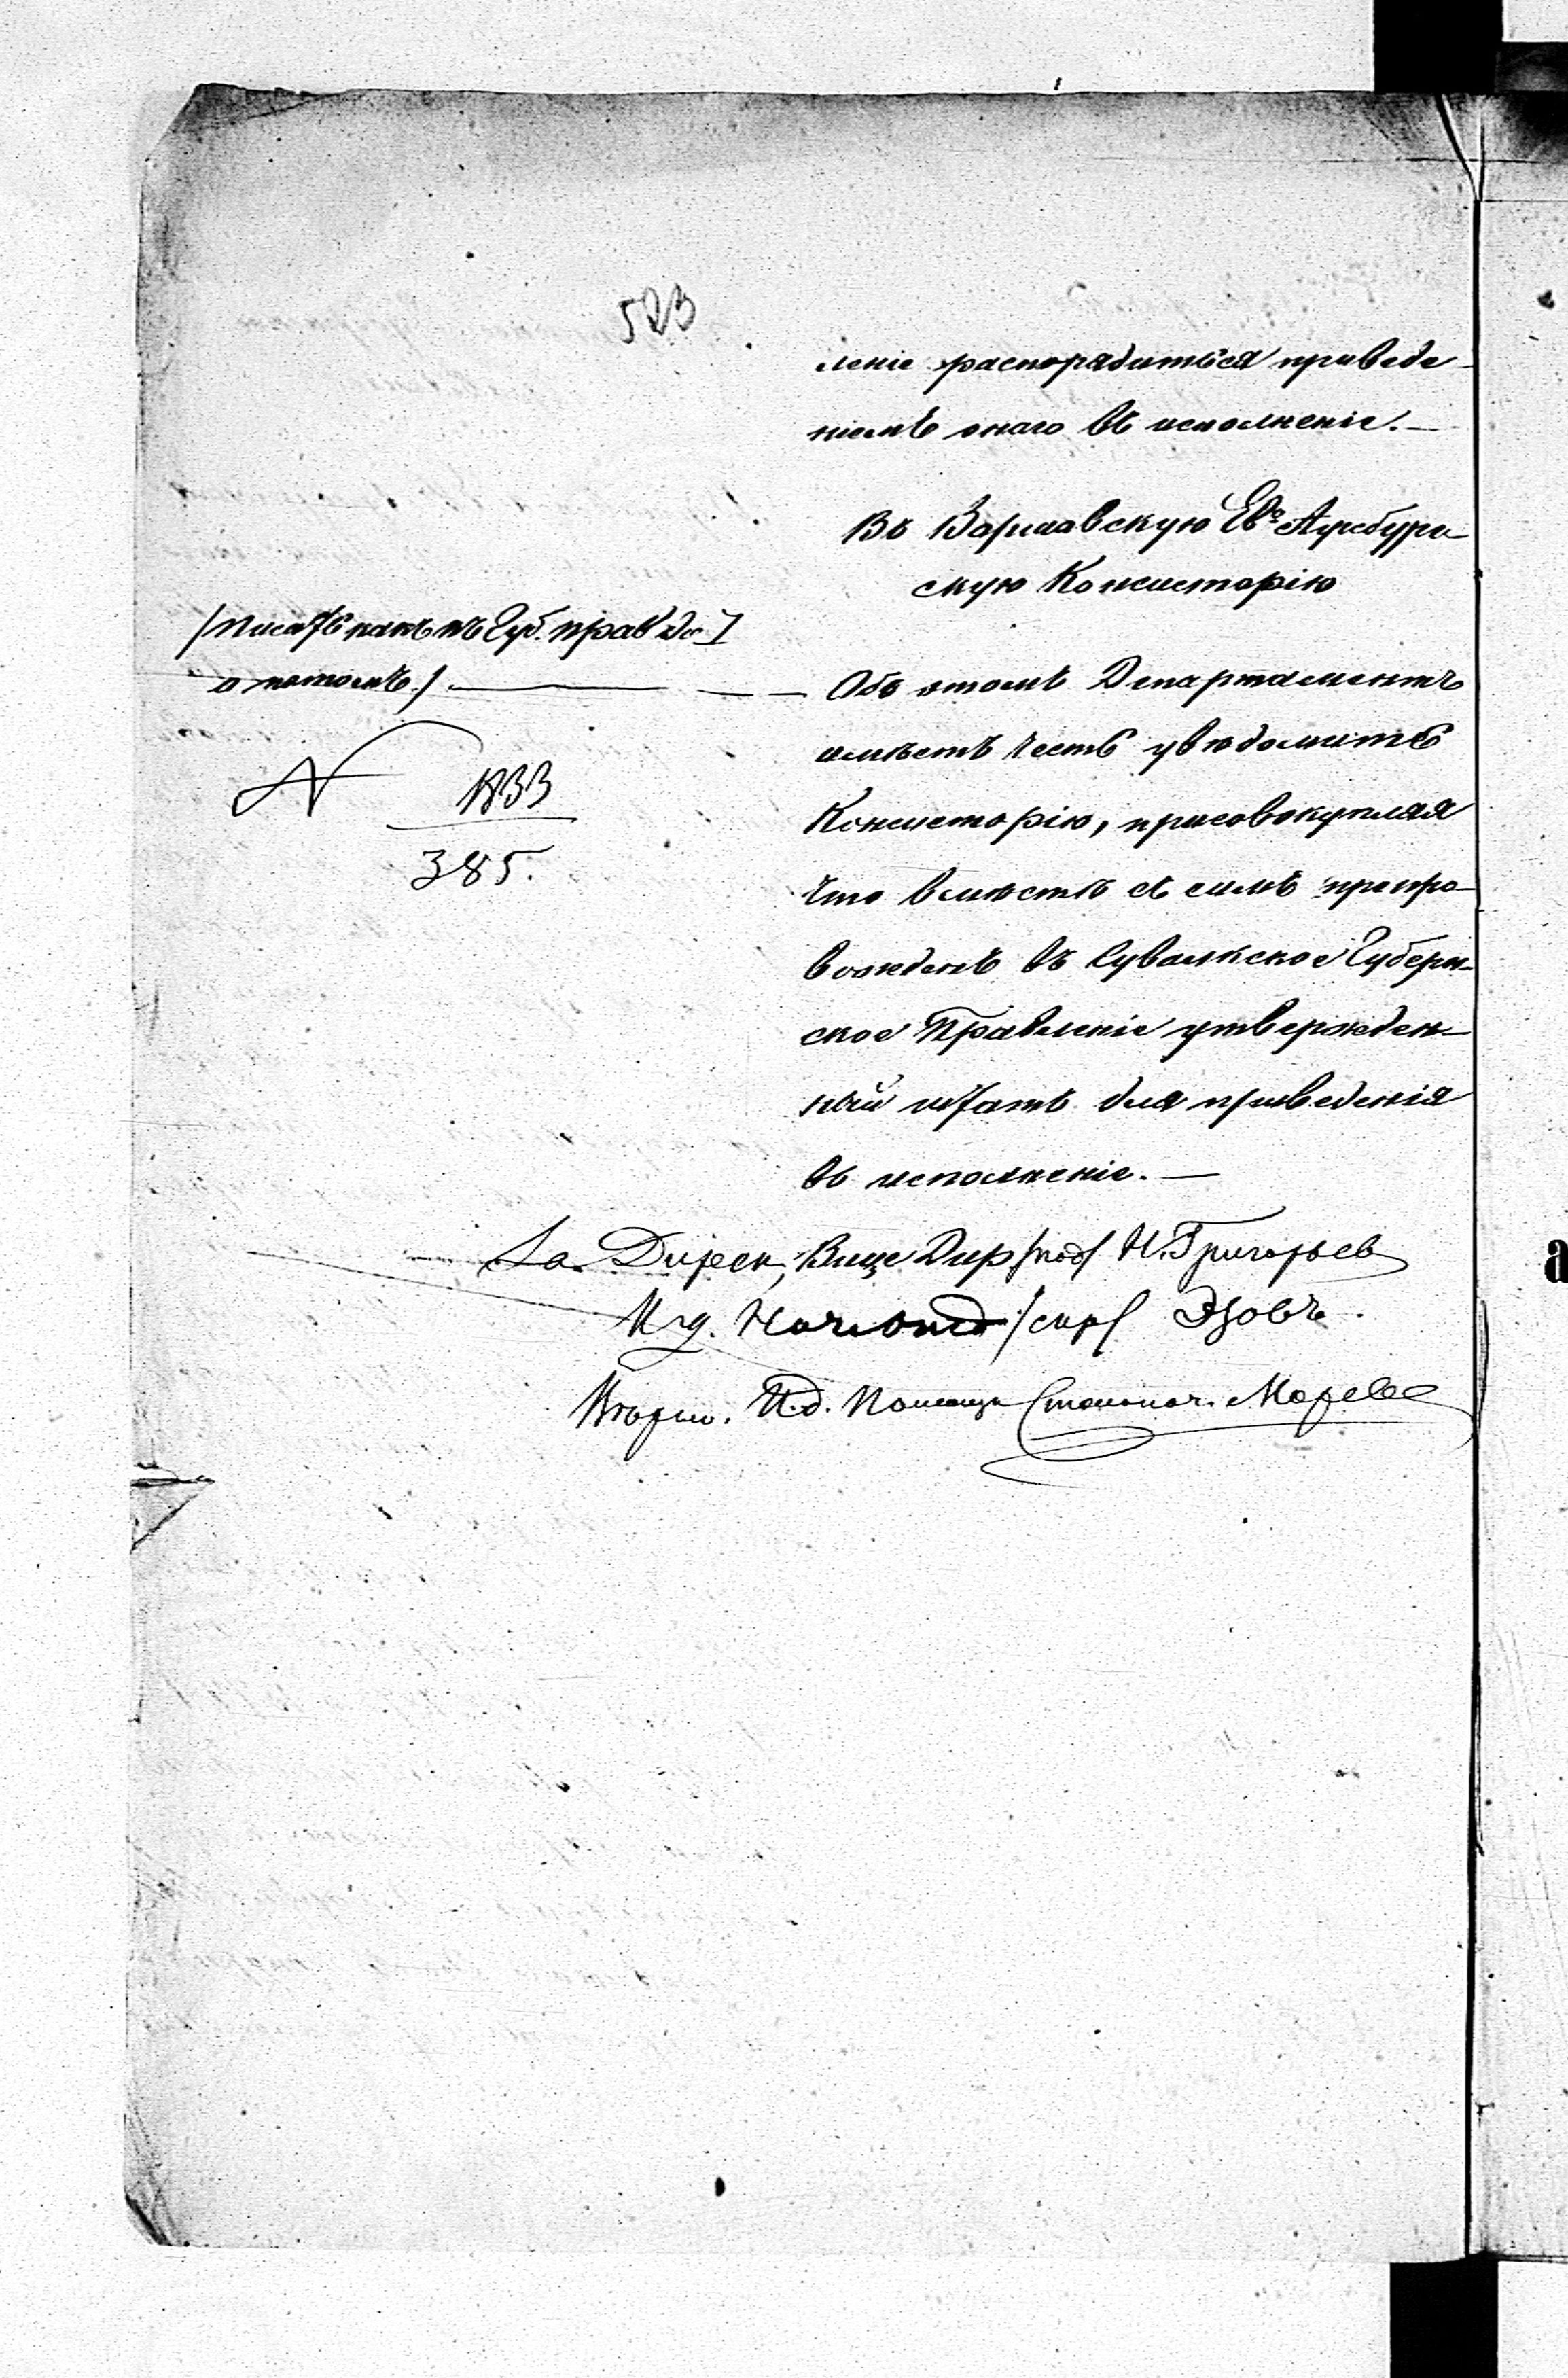 523
леніе распорядиться приведе-
ніемъ онаго въ исполненіе. —
Въ Варшавскую Ев. Аугсбург-
скую Консисторію
/писать какъ въ Губ. прав. до
а потомъ/. — — — Объ этомъ Департаментъ
имѣетъ честь увѣдомить
N 1833
Консисторію, присовокупляя
385.
что вмѣстѣ съ симъ препро-
вожденъ въ Сувалкское Губерн-
ское Правленіе утвержден-
ный штатъ для приведенія
въ исполненіе. —
За Дирек, Вице Дир /под/ Н. Григорьев
И д. /скр/ Эзовъ.
И.д. Помощн. Столонач.
а